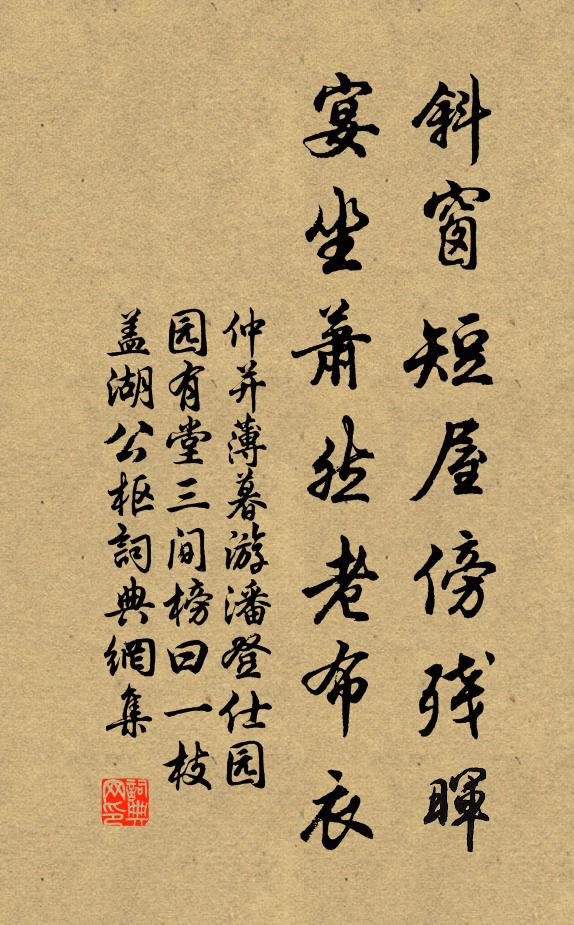 斜窗短屋傍残暉
宴坐萧然老布衣
仲并薄暮游潘登仕园
园有堂三间榜曰一枝
盖湖公枢詞典網集
詞典网印